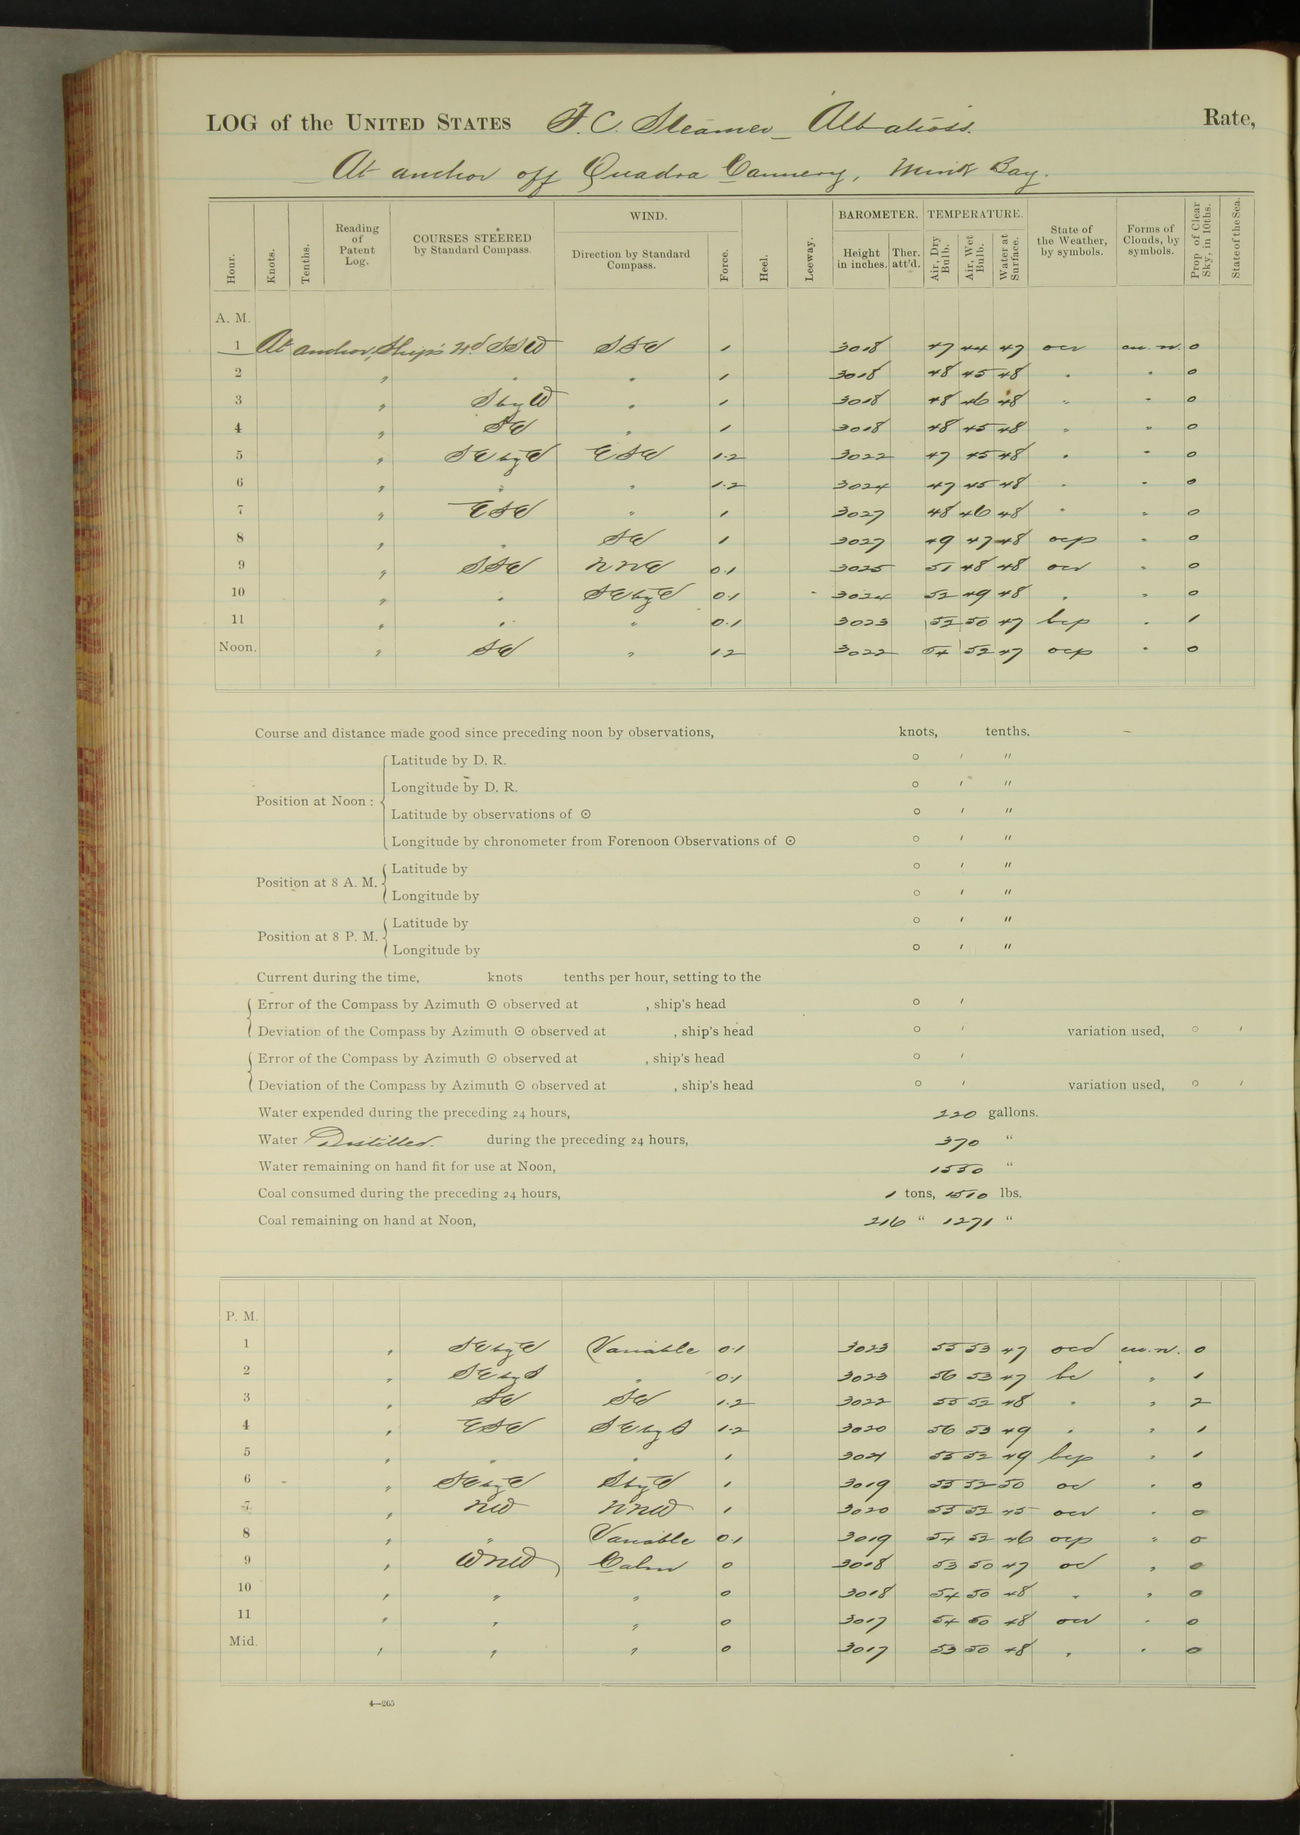 LOG of the UNITED STATES F. C. Steamer Albatross. Rate,
At anchor off Quadra Cannery, Mink Bay.
Hour. Knots. Tenths. Reading of Patent Log. COURSES STEERED by Standard Compass. WIND. Direction by Standard Compass. Force. Heel. Leeway. BAROMETER. Height in inches. Ther. att'd. TEMPERATURE. Air, Dry Bulb. Air, Wet Bulb. Water at Surface. State of the Weather, by symbols. Forms of Clouds, by symbols. Prop. of Clear Sky, in 10ths. State of the Sea.
A. M.
1 At anchor, Ship's H'd SSW SSE 1 30.18 47 44 47 ocr cu. n. 0
2 " " " 1 30.18 48 45 48 " " 0
3 " S by W " 1 30.18 48 46 48 " " 0
4 " SE " 1 30.18 48 45 48 " " 0
5 " SE by E ESE 1-2 30.22 47 45 48 " " 0
6 " " " 1-2 30.24 47 45 48 " " 0
7 " ESE " 1 30.27 48 46 48 " " 0
8 " " SE 1 30.27 49 47 48 ocp " 0
9 " SSE NNE 0-1 30.25 51 48 48 ocr " 0
10 " " SE by E 0-1 30.24 52 49 48 " " 0
11 " " " 0-1 30.23 52 50 47 bcp " 1
Noon. " SE " 1-2 30.22 54 52 47 ocp " 0
Course and distance made good since preceding noon by observations, knots, tenths.
Position at Noon : Latitude by D. R. ° ′ ″
Longitude by D. R. ° ′ ″
Latitude by observations of ☉ ° ′ ″
Longitude by chronometer from Forenoon Observations of ☉ ° ′ ″
Position at 8 A. M. Latitude by ° ′ ″
Longitude by ° ′ ″
Position at 8 P. M. Latitude by ° ′ ″
Longitude by ° ′ ″
Current during the time, knots tenths per hour, setting to the
Error of the Compass by Azimuth ☉ observed at , ship's head ° ′
Deviation of the Compass by Azimuth ☉ observed at , ship's head ° ′ variation used, ° ′
Error of the Compass by Azimuth ☉ observed at , ship's head ° ′
Deviation of the Compass by Azimuth ☉ observed at , ship's head ° ′ variation used, ° ′
Water expended during the preceding 24 hours, 220 gallons.
Water Distilled. during the preceding 24 hours, 370 "
Water remaining on hand fit for use at Noon, 1550 "
Coal consumed during the preceding 24 hours, 1 tons, 1510 lbs.
Coal remaining on hand at Noon, 216 " 1271 "
P. M.
1 " SE by E Variable 0-1 30.23 55 53 47 ocd cu. n. 0
2 " SE by S " 0-1 30.23 56 53 47 bc " 1
3 " SE SE 1-2 30.22 55 52 48 " " 2
4 " ESE SE by S 1-2 30.20 56 53 49 " " 1
5 " " " 1 30.21 55 52 49 bcp " 1
6 " SE by E S by E 1 30.19 55 52 50 oc " 0
7 " NW NNW 1 30.20 55 52 45 ocr " 0
8 " " Variable 0-1 30.19 54 52 46 ocp " 0
9 " WNW Calm 0 30.18 53 50 47 oc " 0
10 " " " 0 30.18 54 50 48 " " 0
11 " " " 0 30.17 54 50 48 ocr " 0
Mid. " " " 0 30.17 53 50 48 " " 0
4—265